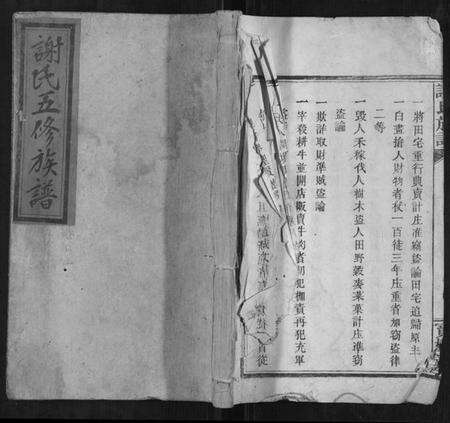 謝氏五修族譜
一將田宅重行典賣計庄准竊盜論田宅追歸原主
一白晝搶人財物者杖一百徒三年庄重者加竊盜律
二等
一毀人禾稼伐人樹木盜人田野穀麥菜菓計庄準竊
盜論
一欺詐取財準賊盜論
一宰殺耕牛並開店販賣牛肉者初犯枷責再犯充軍